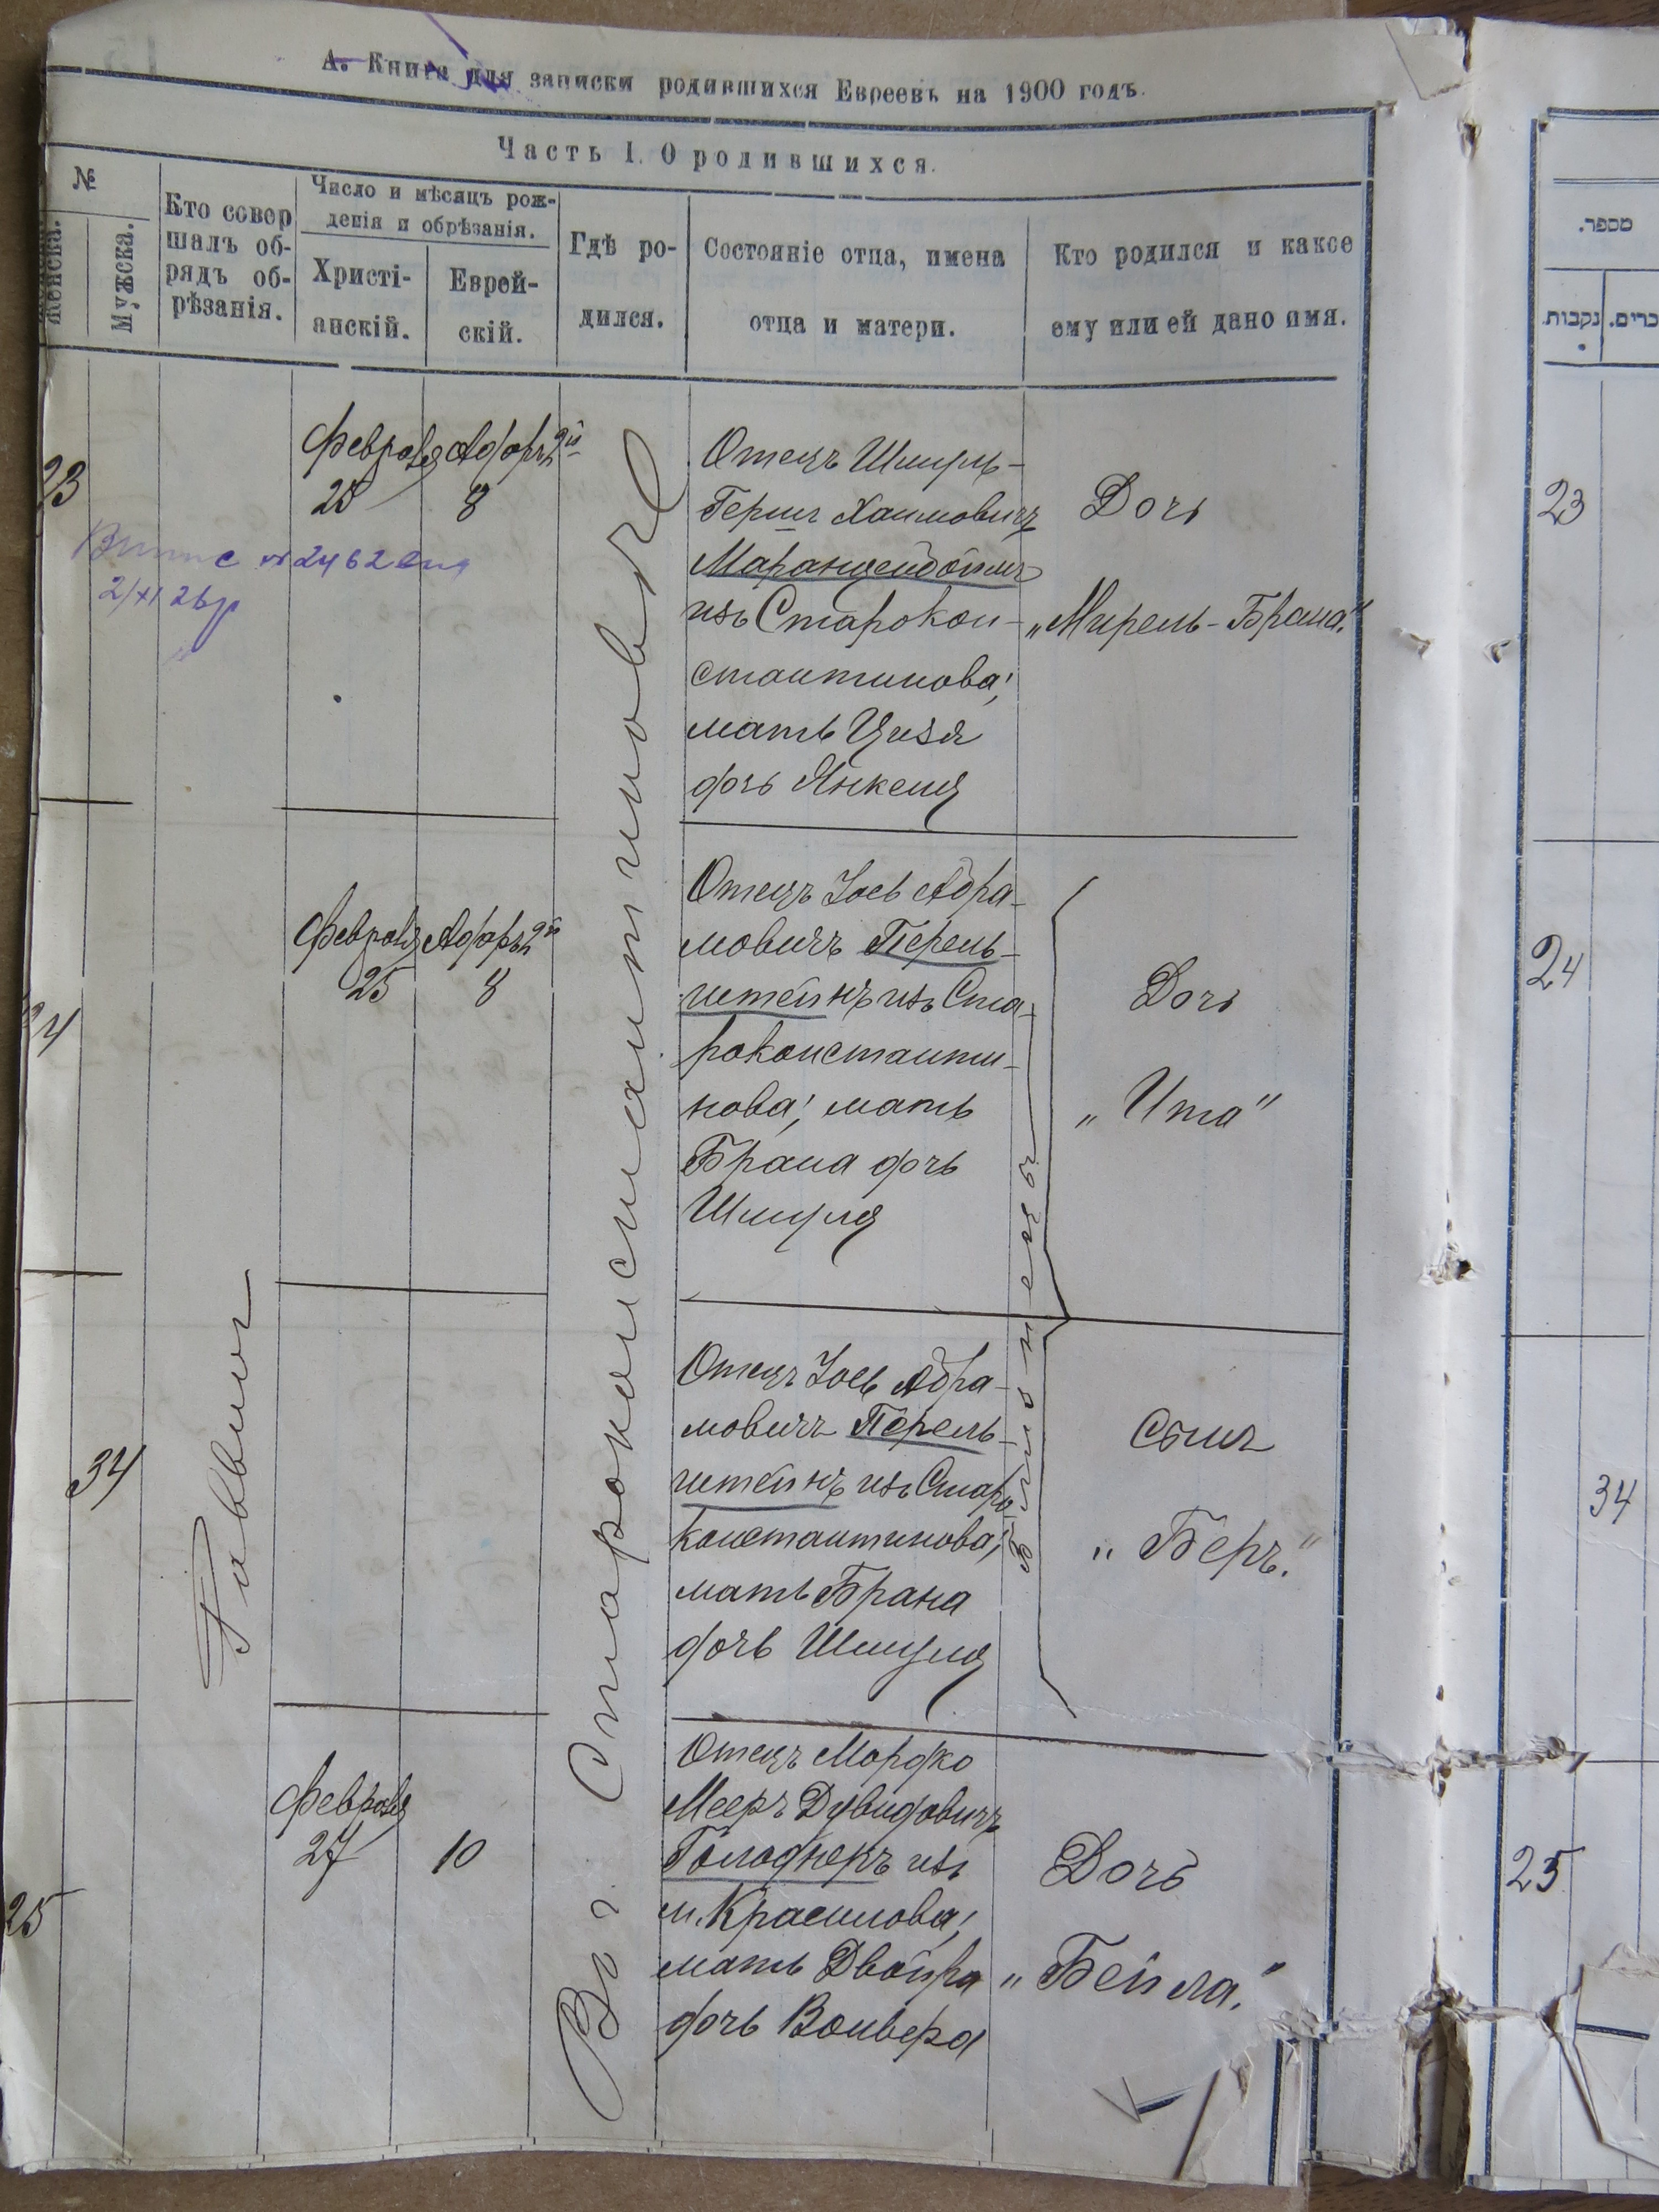 А. Книга для записки родившихся Евреевъ на 1900 годъ.
Часть I. О родившихся.
№
Женска.
Мужска.
Кто совер
шалъ об-
рядъ об-
рѣзанія.
Число и мѣсяцъ рож-
денія и обрѣзанія.
Христі-
анскій.
Еврей-
скій.
Гдѣ ро-
дился.
Состояніе отца, имена
отца и матери.
Кто родился и какое
ему или ей дано имя.
23
Февраля
25
8
Отецъ Шмуль-
Гершъ Хаимовичъ
изъ Старокон-
стантинова;
мать Цизя
дочь Янкеля
Дочь
„Мирель-Брана"
2462
24
Февраля
25
8
Отецъ Іось Абра-
мовичъ Перель-
штейнъ изъ Ста-
роконстанти-
нова; мать
Брана дочь
Шмуля
Дочь
„Ита"
Близнецы
34
Отецъ Іось Абра-
мовичъ Перель-
штейнъ изъ Старо
константинова;
мать Брана
дочь Шмуля
Сынъ
„Беръ."
Раввинъ
Въ г. Староконстантиновѣ
25
Февраля
27
10
Отецъ Мордко
Мееръ Дувидовичъ
Голоднеръ изъ
м. Красилова;
мать Двойра
дочь Вольвера
Дочь
„Бейла."
מספר.
נקבות.
זכרים.
23
24
34
25